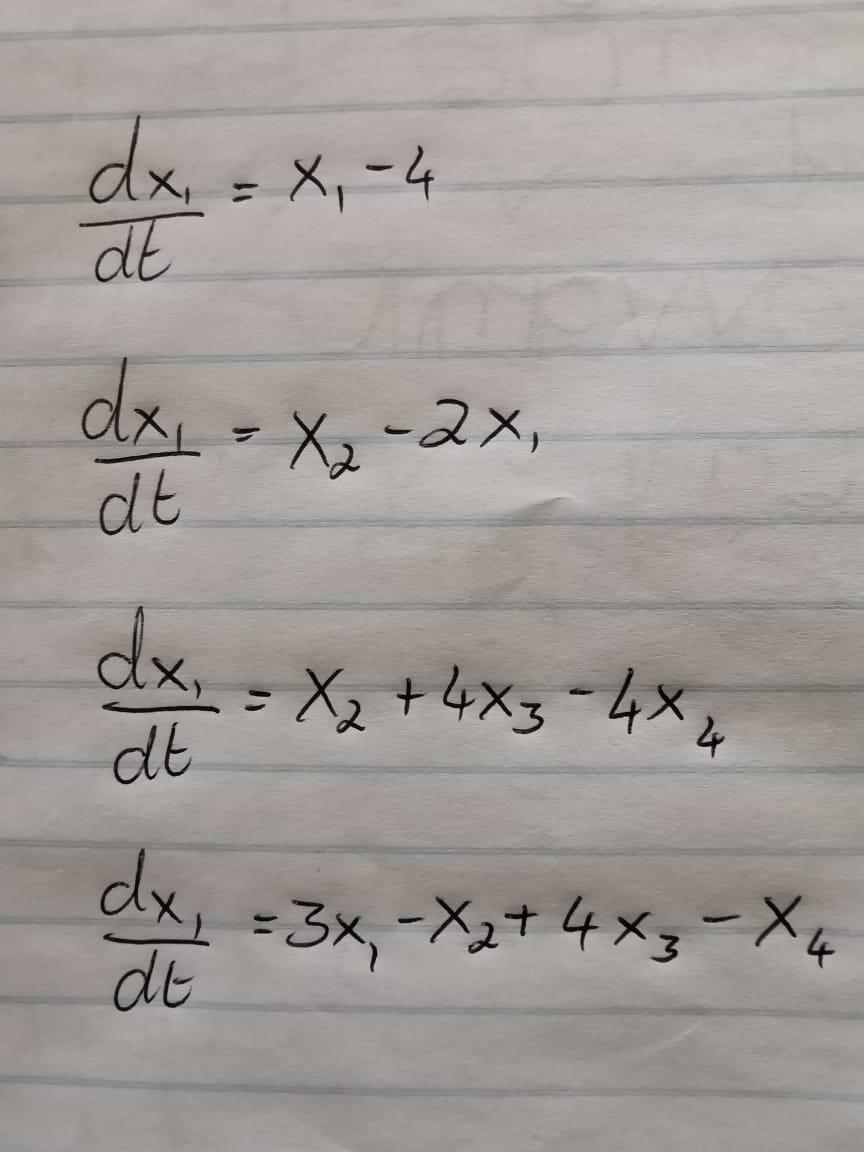 dx₁/dt = x₁ - 4
dx₁/dt = x₂ - 2x₁
dx₁/dt = x₂ + 4x₃ - 4x₄
dx₁/dt = 3x₁ - x₂ + 4x₃ - x₄